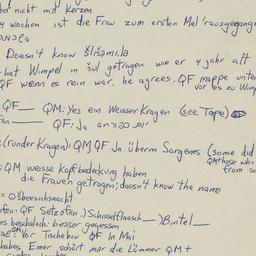 ber nicht mit Kerzen.
4 wochen ist die Frau zum ersten Mal rausgegange
Doesn't know šlišəmilə
hat Wimpel in šul getragen wie er 4 jahr alt
QF wenn es rein war, he agrees. QF mappe unter
vor es zu Wimp
QF— QM: Yes ein Weisser Kragen (see Tape)
en— QF: Ja
:(runder Kragen) QM, QF Ja überm Sargenes (some did
QM those who
from so
:QM weisse Kopfbedeckung haben
die Frauen getragen; doesn't know the name
= ošbeesichsnacht
ofen: QF Setzofen.) Schisselflaasch —) Bintel—
es beschalach: besser gegessen
QM: Vor Tschebov QF In Mai
habes Emer schört mar die Lämmer QM+